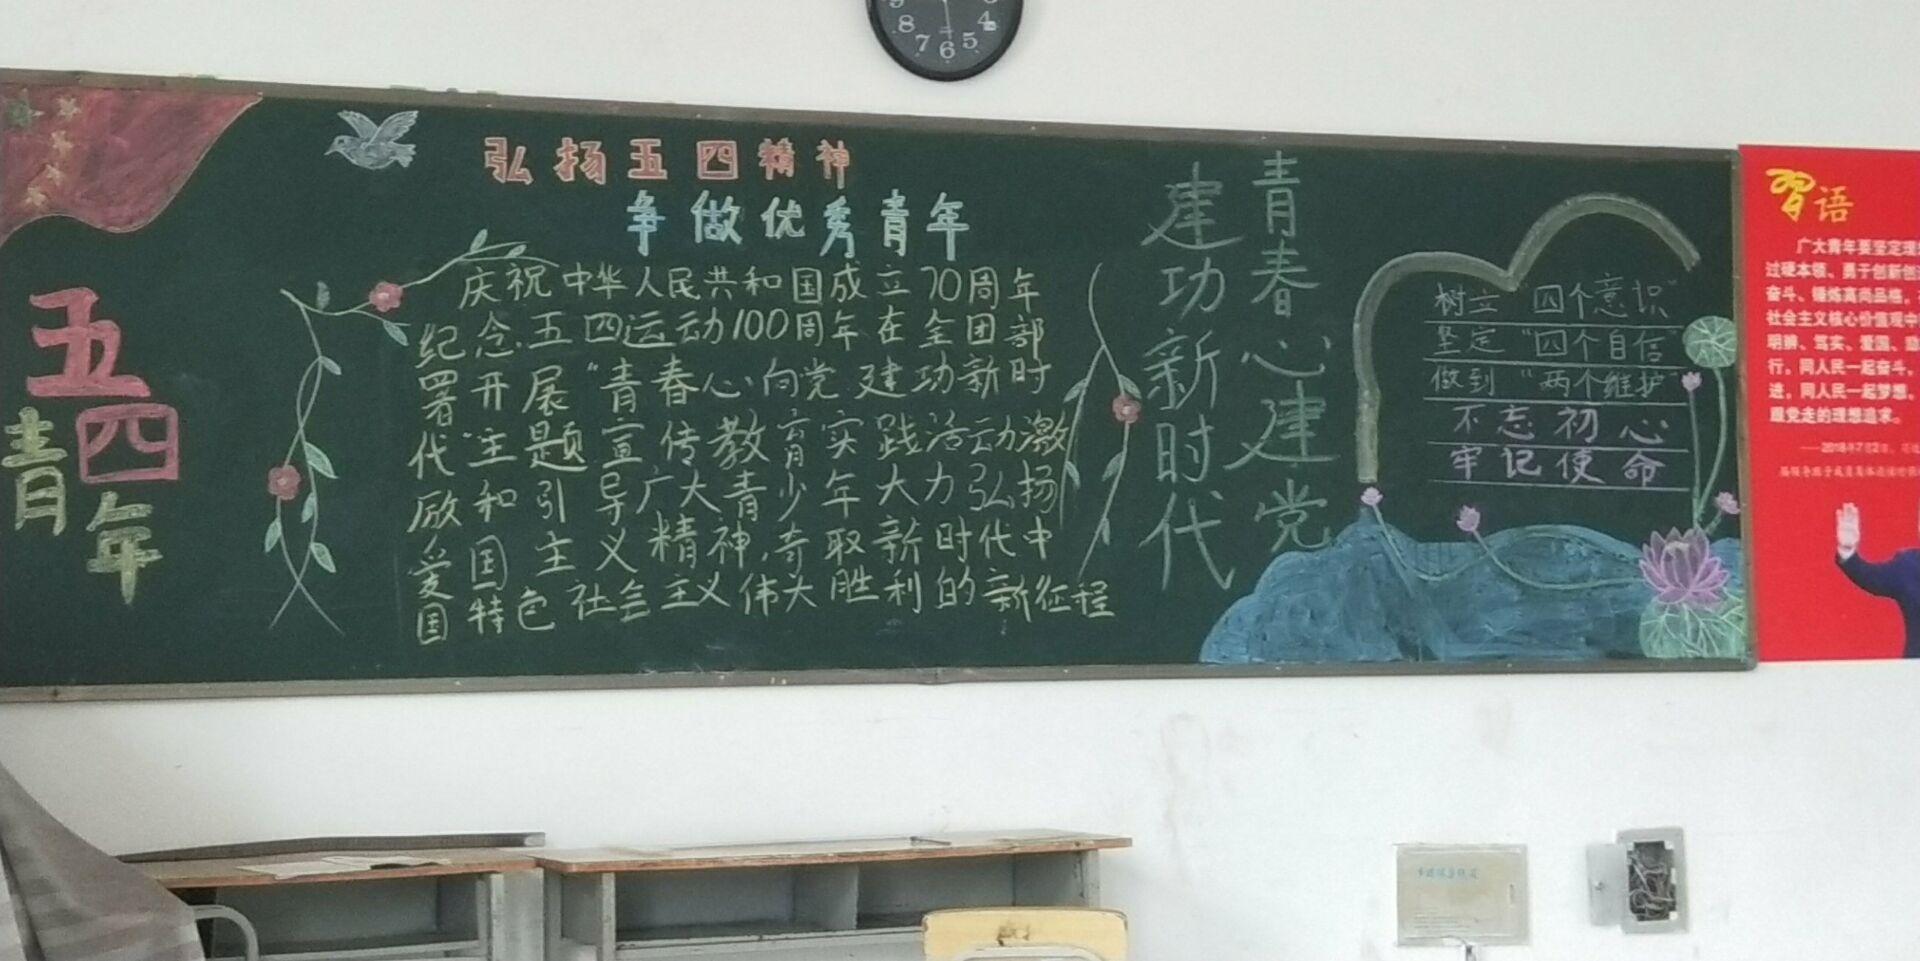 8 7 6 5 4
五四
青年
弘扬五四精神
争做优秀青年
庆祝中华人民共和国成立70周年
纪念五四运动100周年在全团部
署开展“青春心向党建功新时
代”主题宣传教育实践活动激
励和引导广大青少年大力弘扬
爱国主义精神,奇取新时代中
国特色社会主义伟大胜利的新征程
青春心建党
建功新时代
树立“四个意识”
坚定“四个自信”
做到“两个维护”
不忘初心
牢记使命
習语
广大青年要坚定理
过硬本领、勇于创新创
奋斗、锤炼高尚品格,
社会主义核心价值观中
明辨、笃实、爱国、励
行,同人民一起奋斗,
进,同人民一起梦想,
跟党走的理想追求。